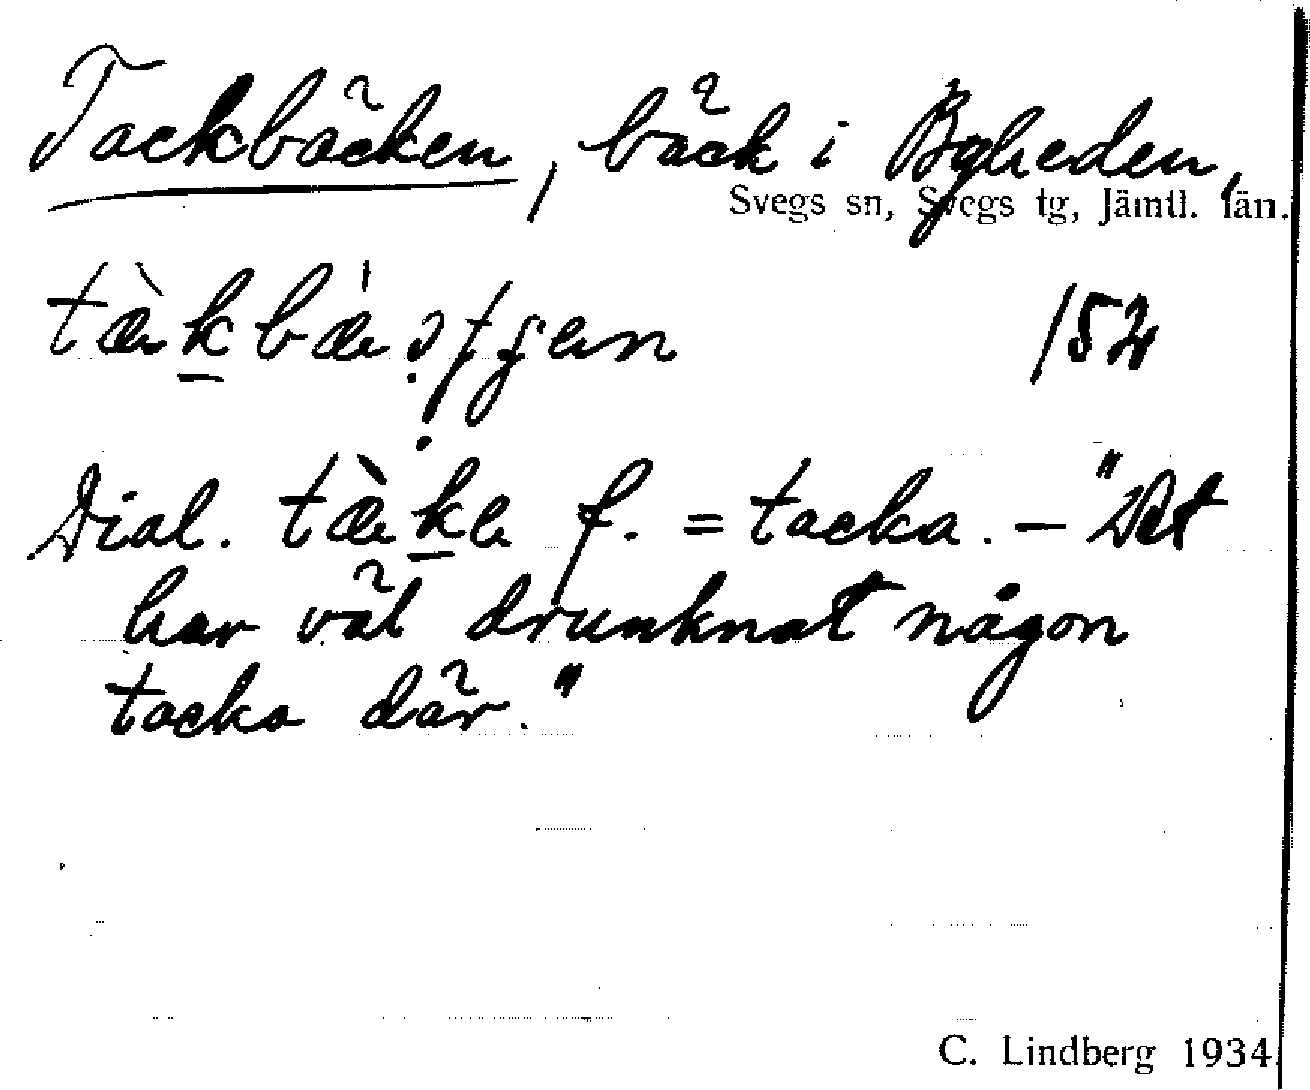 Tackbäcken, bäck i Byheden,
Svegs sn, Svegs tg, Jämtl. län.
152
Dial. tæ̀ḵe f. = tacka. – "Det
har väl drunknat någon
tacka där."
C. Lindberg 1934.